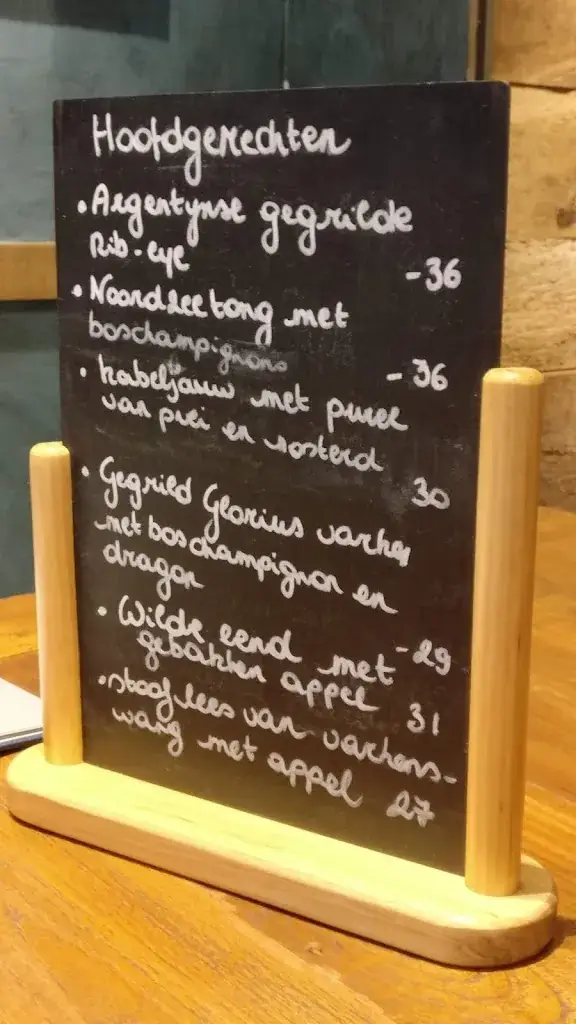 Hoofdgerechten
• Argentijnse gegrilde
Rib-eye
- 36
• Noordzeetong met
boschampignons
- 36
• kabeljauw met puree
van prei en mosterd
30
• Gegrild Glorius varken
met boschampignon en
dragon
- 29
• Wilde eend met
gebakken appel
31
• stoofvlees van varkens-
wang met appel 27